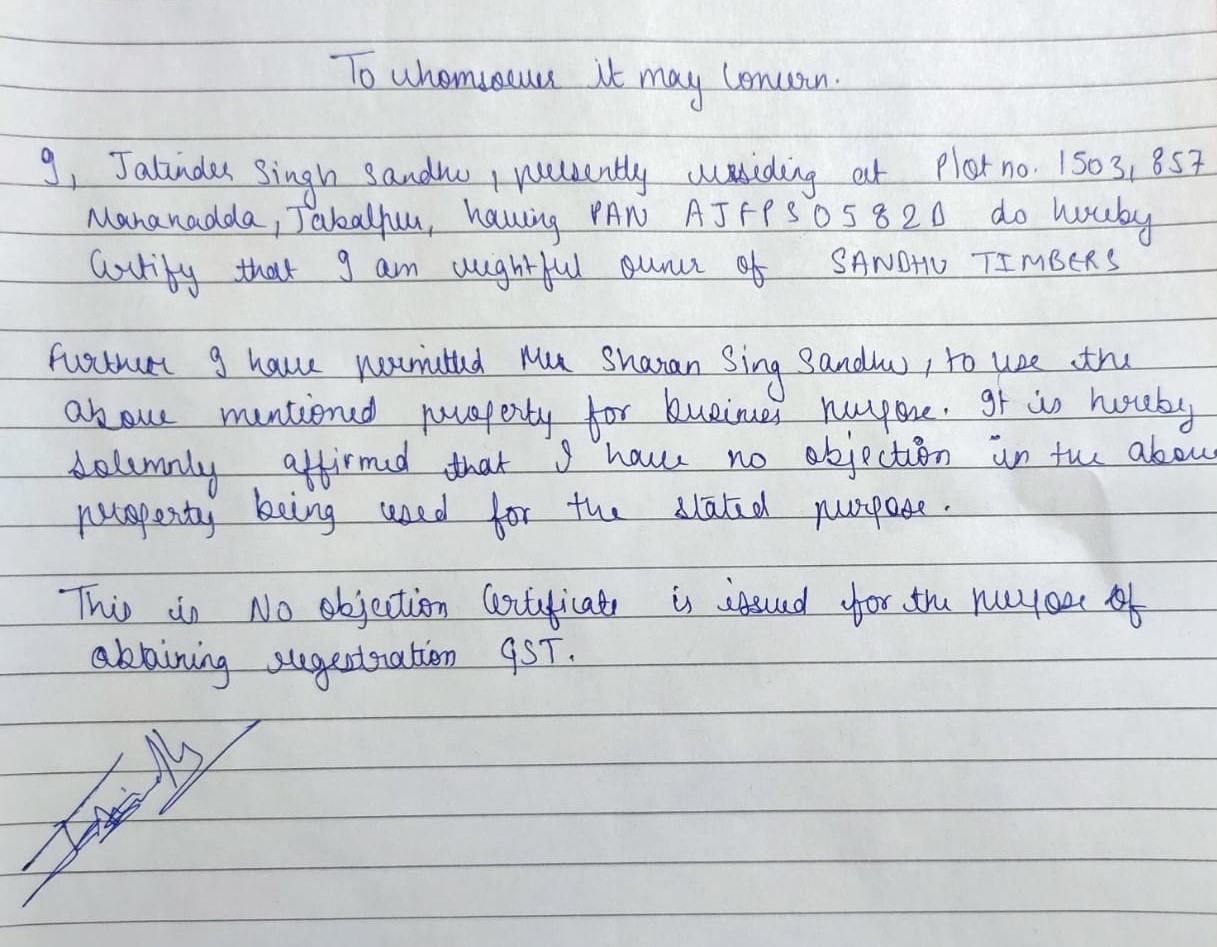 To whomsoever it may Concern.
I, Jatinder Singh Sandhu, presently residing at Plot no. 1503, 857
Mananadda, Jabalpur, having PAN AJFPS0582D do hereby
Certify that I am rightful owner of SANDHU TIMBERS
Further I have permitted Mr Sharan Sing Sandhu, to use the
above mentioned property for business purpose. It is hereby
solemnly affirmed that I have no objection in the above
property being used for the stated purpose.
This is No objection Certificate is issued for the purpose of
obtaining regestration GST.